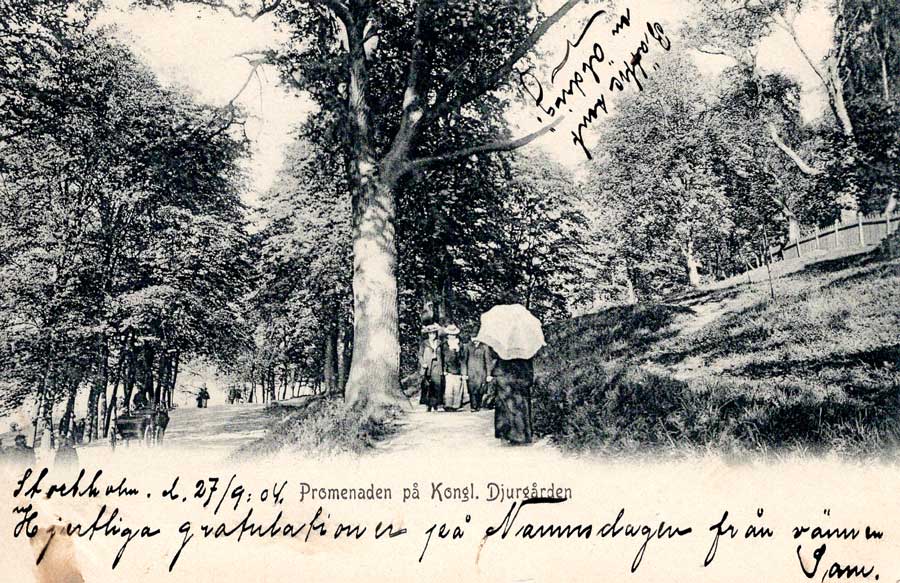 Stockholm. d. 27/9.04. Promenaden på Kongl. Djurgården
Hjertliga gratulationer på Namnsdagen från vännen
Sam.